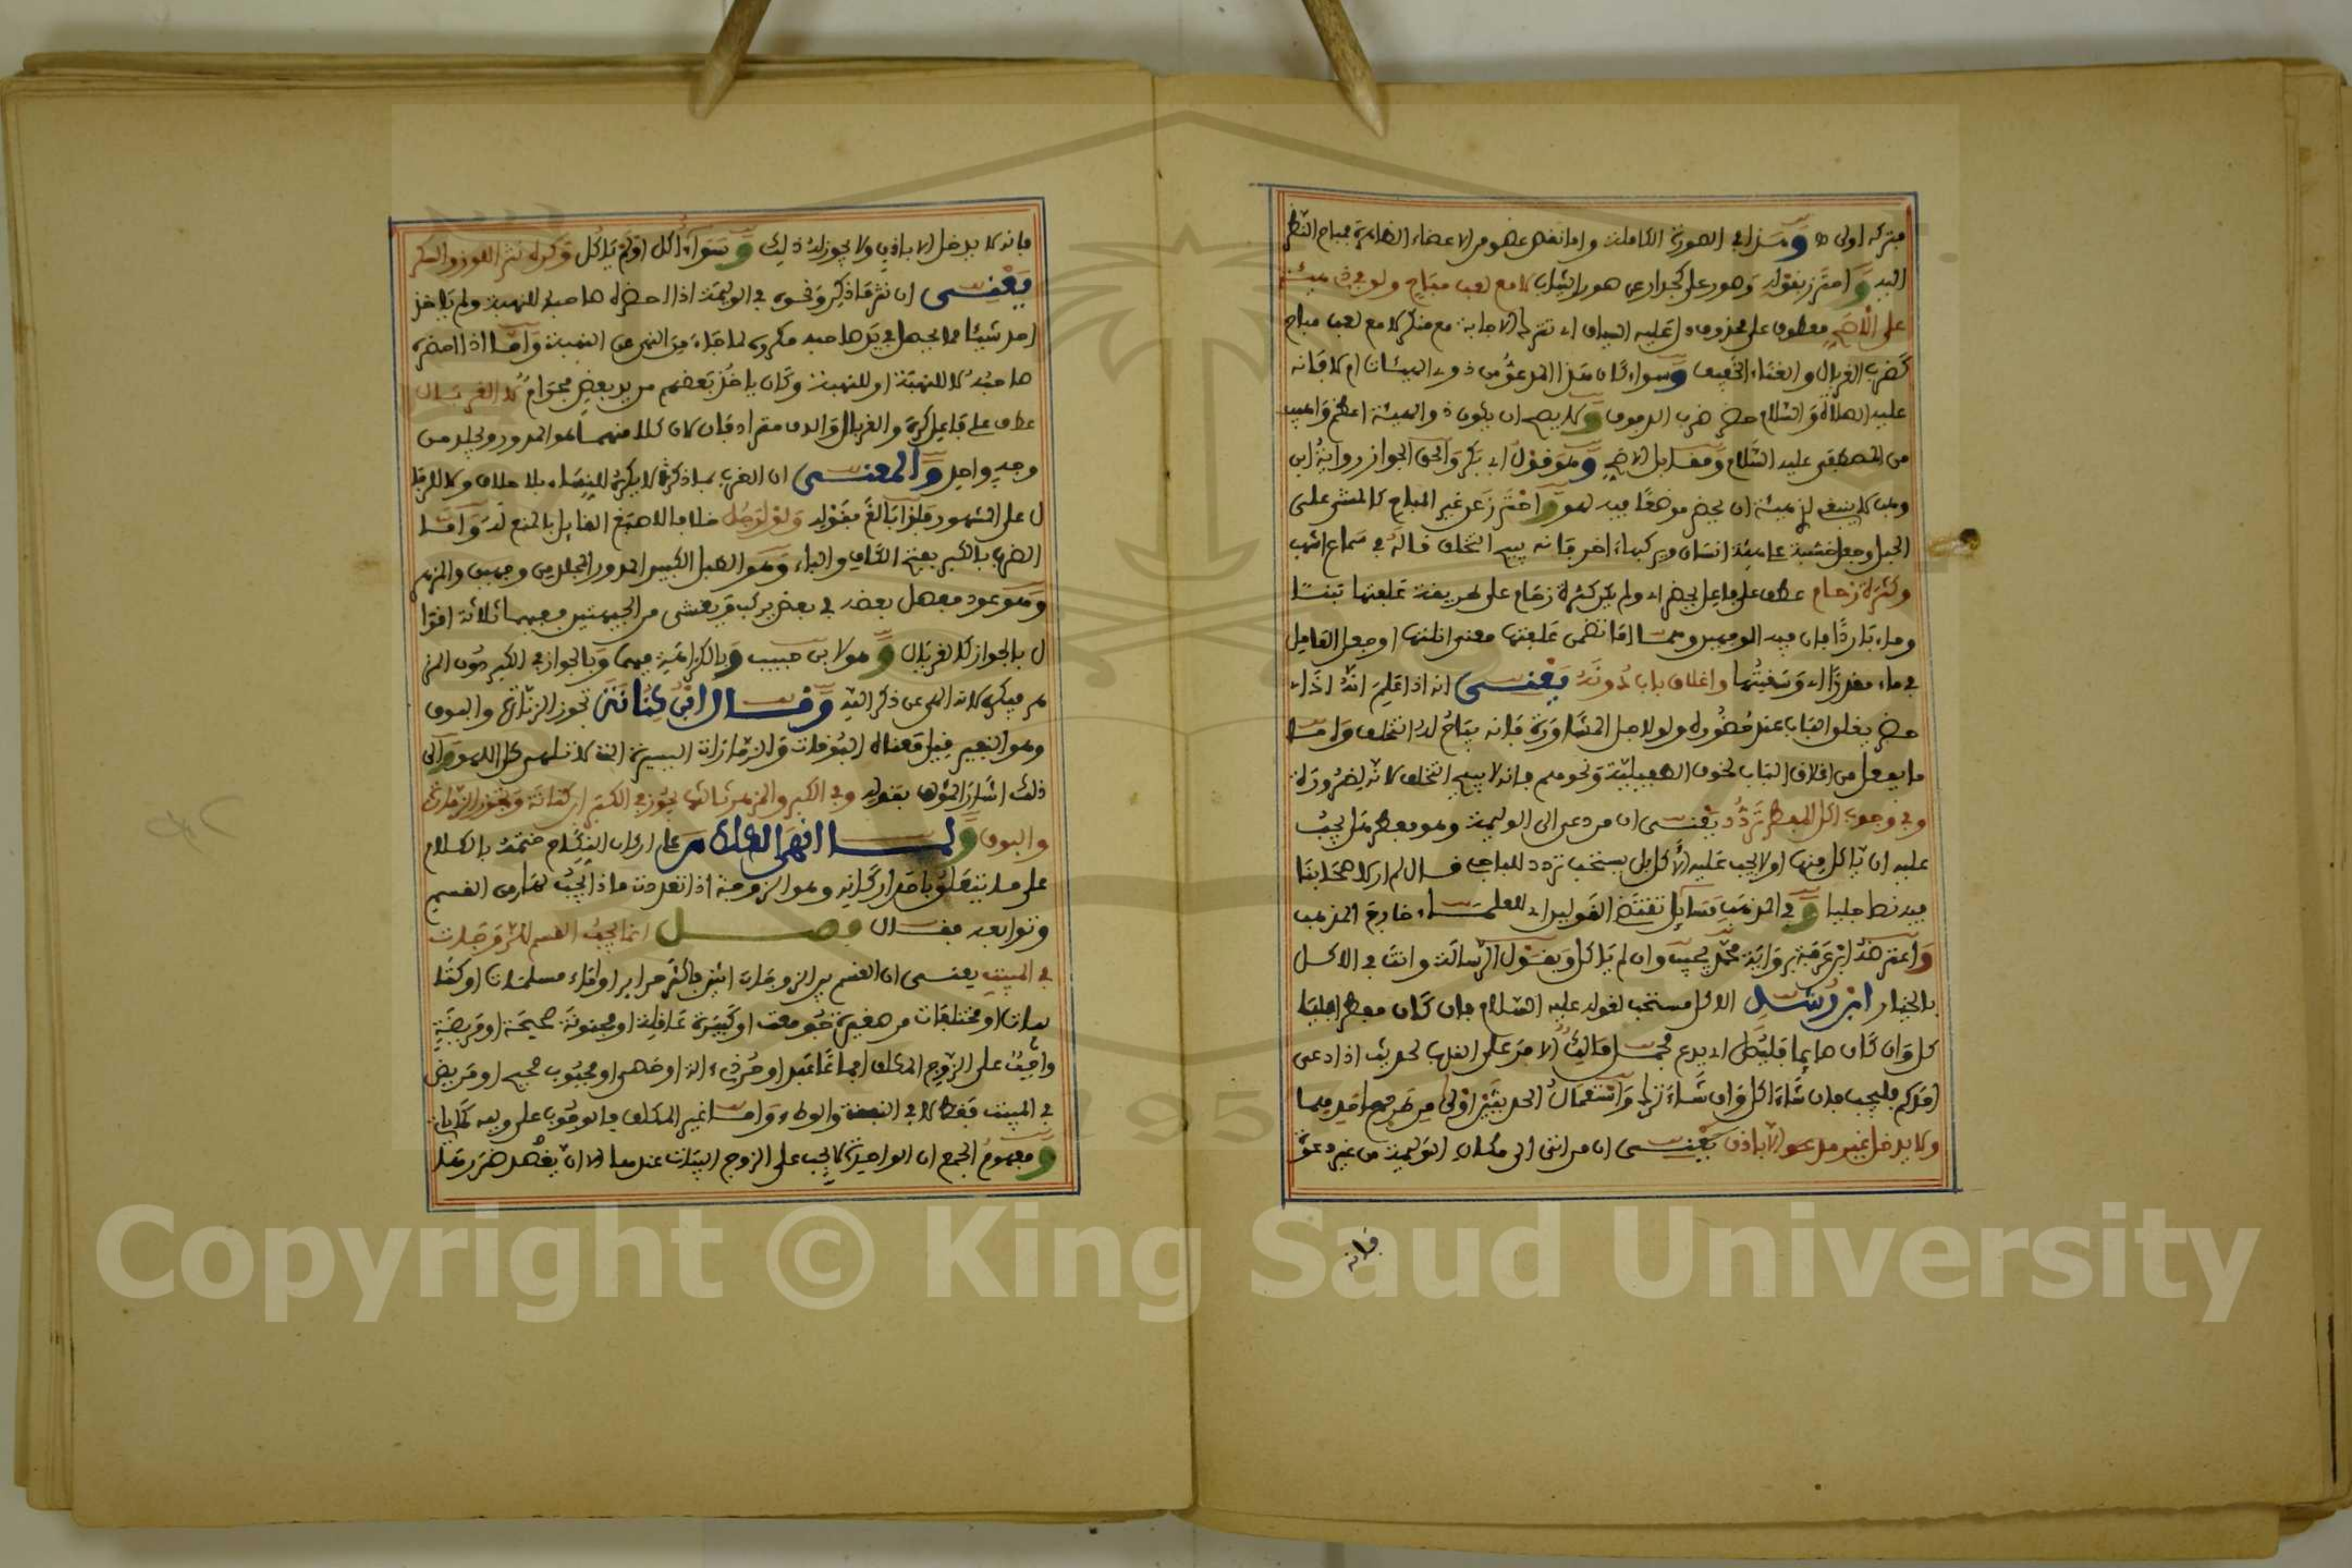 فتركه اولى وهذا في الصورة الكاملة واما نقص عضو من الاعضاء الظاهرة فمباح النظر
اليه واحترز بقوله وصور على كجدار عن صور الثياب لا مع لعب مباح ولو في ذي هيئة
على الاصح معطوف على محذوف دل عليه السياق اي تترك الاجابة مع منكر لا مع لعب مباح
كضرب الغربال والغناء الخفيف وسواء كان هذا المدعو من ذوي الهيئات ام لا فانه
عليه الصلاة والسلام حضر ضرب الدفوف ولا يصح ان يكون ذو الهيئة اعظم واهيب
من المصطفى عليه السلام ومقابل الاصح وهو قول ابي بكر والحق الجواز رواية ابن
وهب لا ينبغي لذي هيئة ان يحضر موضعا فيه لهو واحترز عن غير المباح كالمشي على
الحبل وجعل خشبة على جبهة انسان ويركبها اخر فانه يبيح التخلف قاله في سماع اشهب
وكثرة زحام عطف على فاعل يحضر اي ولم يكن كثرة زحام على طريقة علفتها تبنا
وماء باردا فان فيه الوجهين وهما اما تضمن علفتها معنى انلتها او جعل العامل
في ماء مقدرا اي وسقيتها واغلاق باب دونه يعني انه اذا علم انه اذا
حضر يغلق الباب عند حضوره ولو لاجل المشاورة فانه يباح له التخلف واما
ما يفعل من اغلاق الباب لخوف الطفيلية ونحوهم فانه لا يبيح التخلف لانه لضرورة
وفي وجوب اكل المفطر تردد يعني ان من دعي الى الوليمة وهو مفطر هل يجب
عليه ان ياكل منها او لا يجب عليه الاكل بل يستحب تردد للباجي قال لم ار لاصحابنا
فيه نصا جليا وفي المذهب مسائل تقتضي القولين اي للعلماء خارج المذهب
واعترضه ابن عرفة برواية محمد يجيب وان لم ياكل وبقول الرسالة وانت في الاكل
بالخيار ابن رشد الاكل مستحب لقوله عليه السلام فان كان مفطرا فليا
كل وان كان صائما فليصل اي يدع فحمل مالك الامر على الندب لحديث اذا دعي
احدكم فليجب فان شاء اكل وان شاء ترك واستعمال الحديثين اولى من طرح احدهما
ولا يدخل غير مدعو الا باذن يعني ان من اتى الى مكان الوليمة من غير دعوة
فانه
فانه لا يدخل الا باذن ولا يجوز له ذلك وسواء اكل او لم ياكل وكره نثر اللوز والسكر
يعني ان نثر ما ذكر ونحوه في الوليمة اذا احضره صاحبه للنهبة ولم ياخذ
احد شيئا مما يحصل في يد صاحبه مكروه لما جاء من النهي عن النهبة واما اذا احضره
صاحبه لا للنهبة او للنهبة وكان ياخذ بعضهم من يد بعض فحرام لا الغربال
عطف على فاعل كره والغربال والدف مترادفان لان كلا منهما هو المدور ويجلد من
وجه واحد والمعنى ان الضرب بما ذكره لا يكره للنساء بلا خلاف ولا للرجا
ل على المشهور فلذا بالغ بقوله ولو لرجل خلافا لاصبغ القائل بالمنع له واما
الضرب بالكبر بفتح الكاف والباء وهو الطبل الكبير المدور المجلد من وجهين والمزهر
وهو عود مفصل بعضه في بعض يركب ويغشى من الجهتين ففيهما ثلاثة اقوا
ل بالجواز كالغربال وهو لابن حبيب وبالكراهية فيهما وبالجواز في الكبر دون المز
هر فيكره لانه الهى عن ذكر الله وقال ابن كنانة تجوز الزمارة والبوق
وهو النفير قيل معناه البوقات والزمارات اليسيرة التي لا تلهي كل اللهو والى
ذلك اشار المؤلف بقوله وفي الكبر والمزهر ثالثها يجوز في الكبر ابن كنانة وتجوز الزمارة
والبوق ولما انهى الكلام على اركان النكاح ختمه بالكلام
على ما يتعلق باحد اركانه وهو الزوجة اذا تعددت ماذا يجب لها من القسم
وتوابعه فقال فصل انما يجب القسم للزوجات
في المبيت يعني ان القسم بين الزوجات اثنين فاكثر حرائر او اماء مسلمات او كتا
بيات او مختلفات من صغيرة جومعت او كبيرة عاقلة او مجنونة صحيحة او مريضة
واجب على الزوج المكلف اجماعا عبد او حر ذي الة او خصي او مجبوب صحيح او مريض
في المبيت فقط لا في النفقة والوطء واما غير المكلف فالوجوب على وليه كما ياتي
ومفهوم الجمع ان الواحدة لا يجب على الزوج البيات عندها الا ان يقصد ضررها